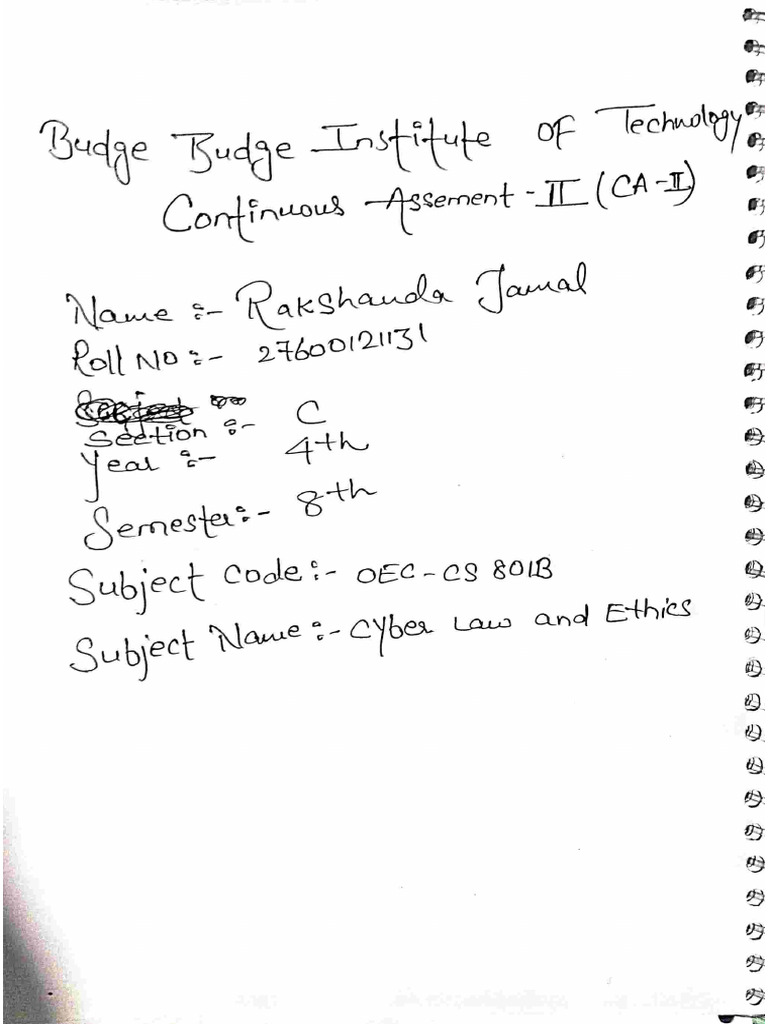 Budge Budge Institute OF Technology
Continuous Assement - II (CA-II)
Name :- Rakshanda Jamal
Roll NO :- 27600121131
Section :- C
Year :- 4th
Semester :- 8th
Subject Code :- OEC-CS 801B
Subject Name :- Cyber Law and Ethics